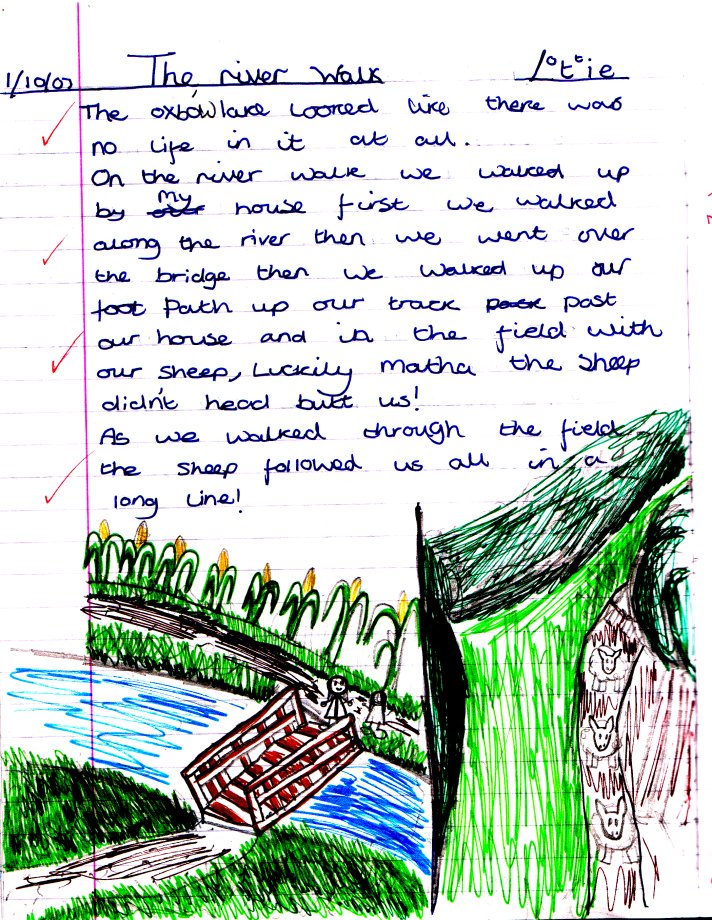 1/10/07 The river walk Lottie
The oxbow lake looked like there was
no life in it at all.
On the river walk we walked up
by my house first we walked
along the river then we went over
the bridge then we walked up our
foot path up our track past
our house and in the field with
our sheep, Luckily matha the sheep
didn't head butt us!
As we walked through the field
the sheep followed us all in a
long line!